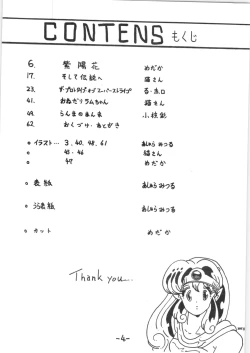 CONTENS もくじ
6. 紫陽花 めだか
17. そして伝説へ 猫さん
23. ザ・プロトタイプ・オブ・スーパーストライプ る・ホロ
41. おねだりラムちゃん 猫さん
49. らんまのまんま 小枝彩
62. おくづけ・あとがき
○イラスト… 3.40.48.61 あしゅらみつる
○ 45・46 猫さん
○ 47 めだか
○ 表紙 あしゅらみつる
○ 裏表紙 あしゅらみつる
○ カット めだか
Thank you...
-4-